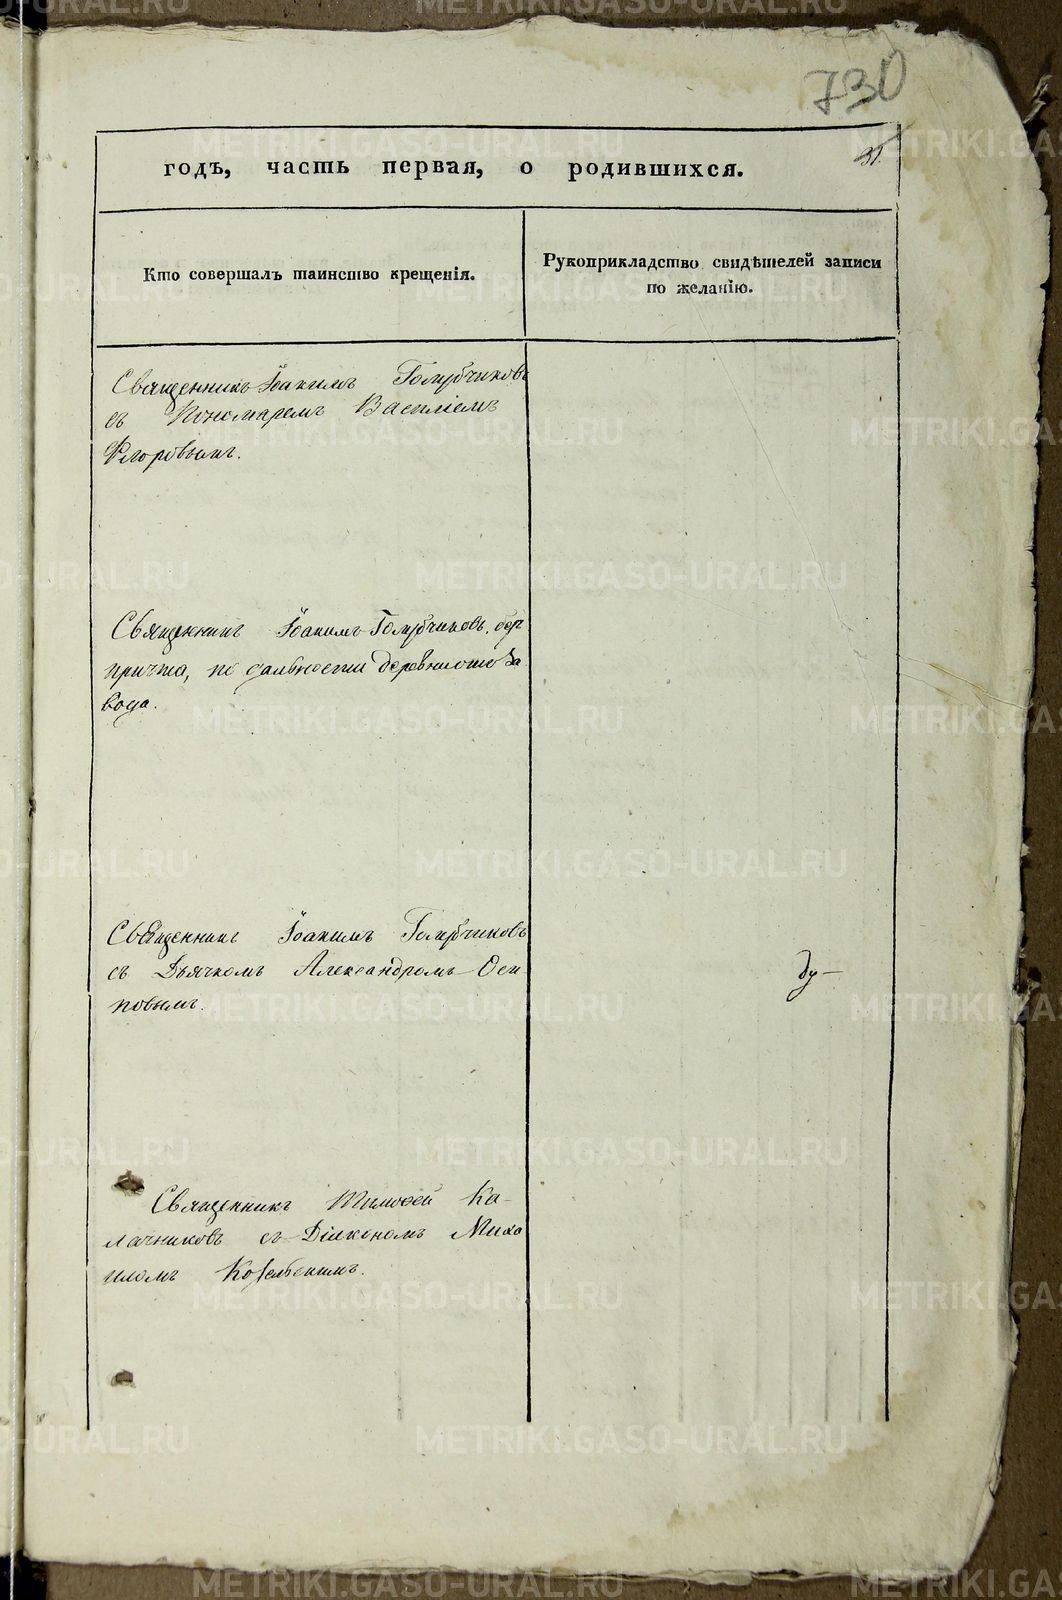 730
31.
годъ, часть первая, о родившихся.
Кто совершалъ таинство крещенія.
Рукоприкладство свидѣтелей записи
по желанію.
Священникъ Іоакимъ Голубчиковъ
съ Пономаремъ Василіемъ
Егоровымъ.
Священникъ Іоакимъ Голубчиковъ, безъ
причта, по дальности деревни отъ за
вода.
Священникъ Іоакимъ Голубчиковъ
съ Дьячкомъ Александромъ Оси
повымъ.
Священникъ Тимофей Ка-
лачниковъ съ Діакономъ Миха
иломъ
METRIKI.GASO-URAL.RU